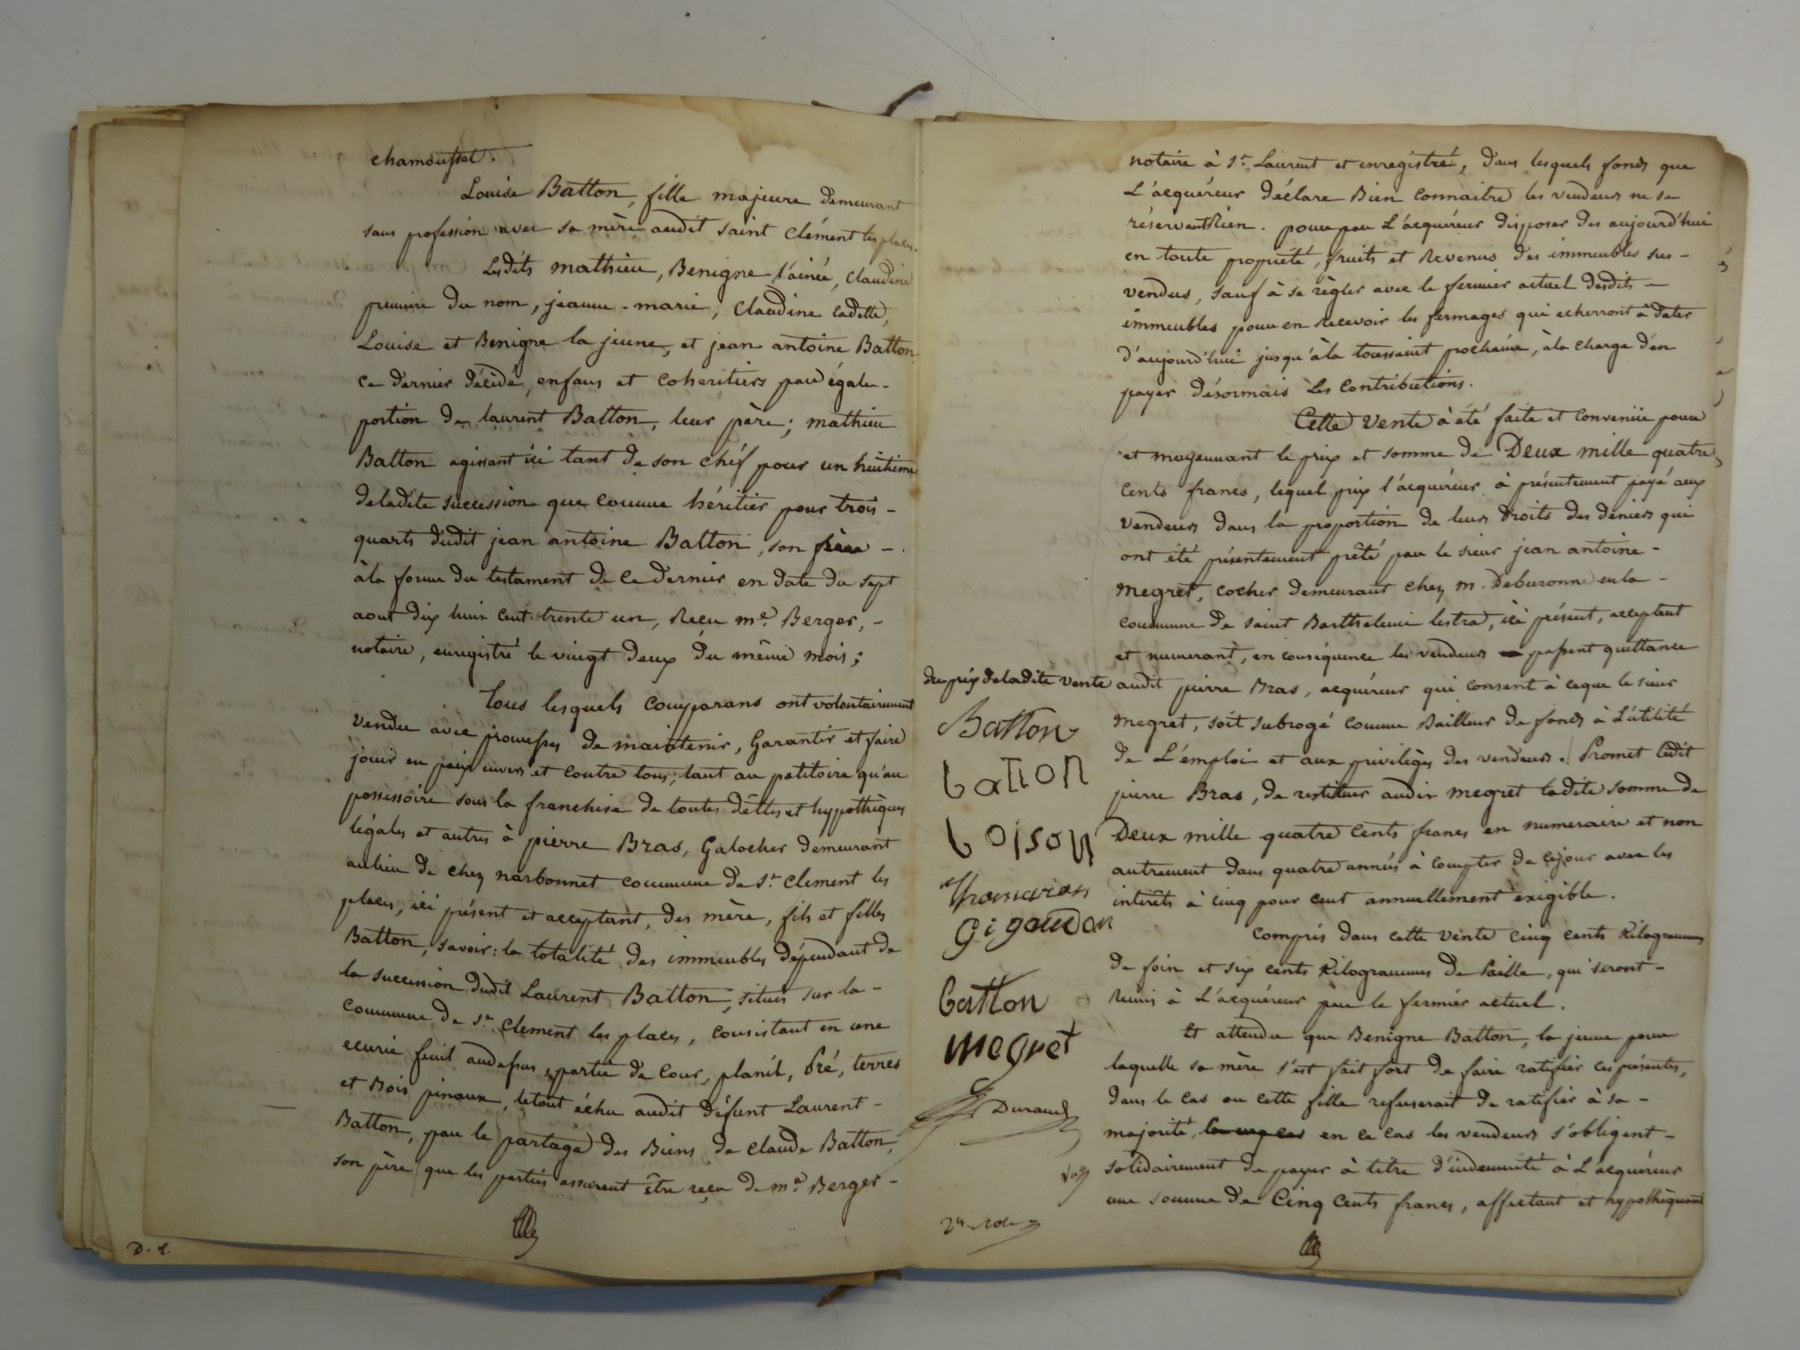 chamousset.
Louise Batton, fille majeure demeurant
sans profession avec sa mère audit saint clément les places.
Lesdits mathieu, Benigne l'ainée, claudine
premiere du nom, jeanne-marie, claudine cadette,
Louise et Benigne la jeune, et jean antoine Batton
ce dernier décédé, enfans et coheritiers par égale-
portion de laurent Batton, leur père; mathieu
Batton agissant ici tant de son chéf pour un huitieme
deladite succession que comme héritier pour trois-
quarts dudit jean antoine Batton, son frère-
àla forme du testament de ce dernier en date du sept
aout dix huit cent trente un, Reçu me. Berger,-
notaire, enregistré le vingt deux du même mois;
Tous lesquels comparans ont volontairement
vendu avec promesses de maintenir, Garantir et faire
jouir en paix envers et contre tous; tant au petitoire qu'au
possessoire sous la franchise de toutes dettes et hypothèques
légales et autres à pierre Bras, Galocher demeurant
aulieu de chez narbonnet commune de st. clement les
places, ici présent et acceptant, des mère, fils et filles
Batton, savoir: la totalité des immeubles dépendant de
la succession dudit Laurent Batton, situés sur la-
commune de st. clement les places, consistant en une
ecurie fenil audessus, partie de cour, planil, Pré, terres
et Bois pinaux, letout échu audit défunt Laurent-
Batton, par le partage des Biens de claude Batton,
son père, que les parties assurent être reçu de me. Berger-
D. 1.
notaire à st. Laurent et enregistré, dans lesquels fonds que
L'acquéreur déclare Bien connaitre les vendeurs ne se
réservent Rien. pour par L'acquéreur disposer des aujourd'hui
en toute propriété, fruits et Revenus des immeubles sus-
vendus, sauf à se règler avec le fermier actuel desdits-
immeubles pour en Recevoir les fermages qui echerront à dater
d'aujourd'hui jusqu'àla toussaint prochaine, àla charge d'en
payer désormais les Contributions.
Cette Vente à été faite et convenüe pour
et moyennant le prix et somme de Deux mille quatre
cents francs, lequel prix l'acquéreur à présentement payé aux
vendeurs dans la proportion de leurs droits des deniers qui
ont été présentement prêté par le sieur jean antoine-
megret, cocher demeurant chez m. Deburonne en la-
commune de saint Barthelemi lestra, ici présent, acceptant
et numerant, en conséquence les vendeurs passent quittance
du prix deladite vente audit pierre Bras, acquéreur qui consent à ceque le sieur
megret, soit subrogé comme Bailleur de fonds à L'utilité
de L'emploi et aux privilèges des vendeurs. Promet ledit
pierre Bras, de restituer audit megret ladite somme de
Deux mille quatre cents francs en numeraire et non
autrement dans quatre années à compter de cejour avec les
intérêts à cinq pour cent annuellement éxigible.
Compris dans cette vente cinq cents Kilogrammes
de foin et six cents Kilogrammes de Paille, qui seront-
Remis à L'acquéreur par le fermier actuel.
Et attendu que Benigne Batton, la jeune pour
laquelle sa mère s'est fait fort de faire ratifier ces présentes,
dans le cas ou cette fille refuserait de ratifier à sa-
majorité, en ce cas les vendeurs s'obligent-
solidairement de payer à titre d'indemnité à L'acquéreur
une somme de Cinq Cents francs, affectant et hypothèquant
Batton
batton
boison
Gigaudon
batton
megret
Durand